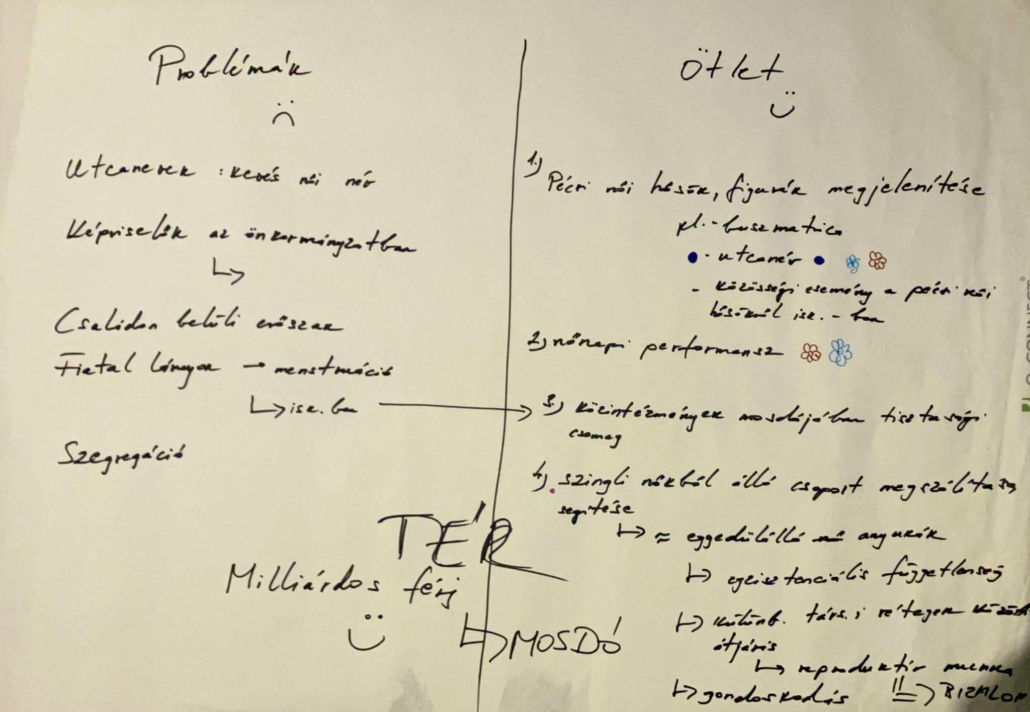 Problémák
Utcanevek : kevés női név
Képviselők az önkormányzatban
Családon belüli erőszak
Fiatal lányok → menstruáció
isk. ban
Szegregáció
TÉR
Milliárdos férj
MOSDÓ
Ötlet
1.) Pécsi női hősök, figurák megjelenítése
pl. - buszmatrica
- utcanév
- közösségi esemény a pécsi női
hősökről isk. - ban
2.) nőnapi performansz
3.) közintézmények mosdójában tisztasági
csomag
4.) szingli nőkből álló csoport megszólítása,
segítése
≈ eggedülálló anyukák
egzisztenciális függetlenség
különb. társ. i rétegek között
átjárás
reproduktív munka
gondoskodás ⇒ BIZALOM